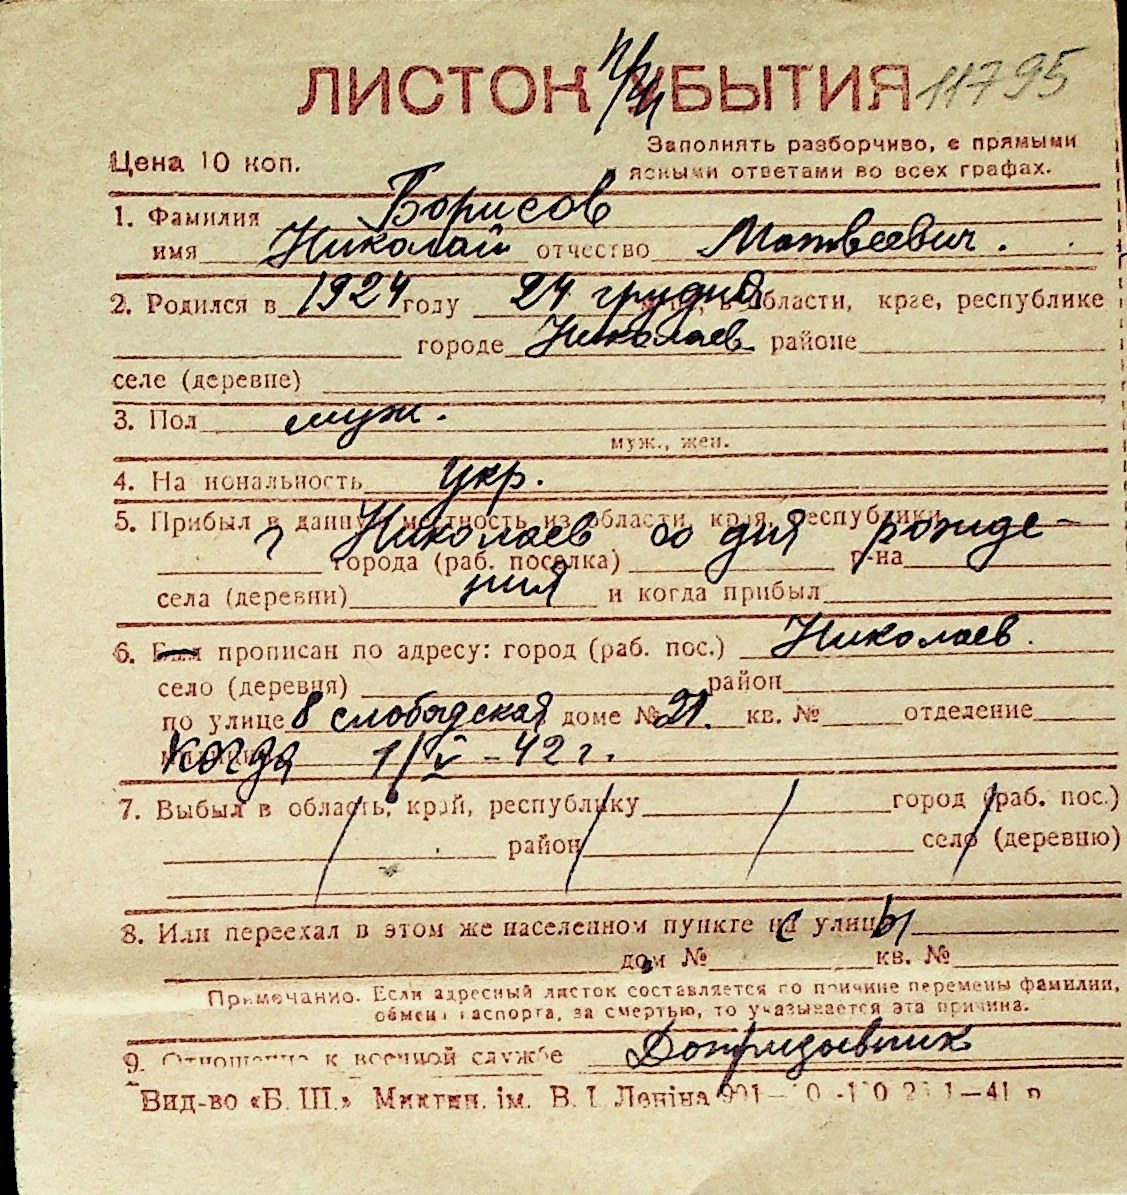 ЛИСТОК УБЫТИЯ 11795
Цена 10 коп.
Заполнять разборчиво, с прямыми
и ясными ответами во всех графах.
1. Фамилия Борисов
имя Николай отчество Матвеевич.
2. Родился в 1924 году 24 грудня в области, крае, республике
городе Николаев районе
селе (деревне)
3. Пол муж.
муж., жен.
4. Национальность Укр.
5. Прибыл в данную местность из области, края, республики
г Николаев со дня рожде-
города (раб. поселка) р-на
ния
села (деревни) и когда прибыл
6. Был прописан по адресу: город (раб. пос.) Николаев.
село (деревня) район
по улице 8 слободская доме № 21. кв. № отделение
когда 1/V-42 г.
7. Выбыл в область, край, республику город (раб. пос.)
район село (деревню)
8. Или переехал в этом же населенном пункте с улицы
дом № кв. №
Примечание. Если адресный листок составляется по причине перемены фамилии,
обмена паспорта, за смертью, то указывается эта причина.
9. Отношение к военной службе Допризывник
Вид-во «Б. Ш.» Миктип. ім. В. І. Леніна